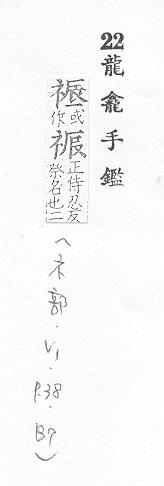 22 龍龕手鑑
或作祳正侍忍反祭名也二
(ネ部.V1.P.38.B7)